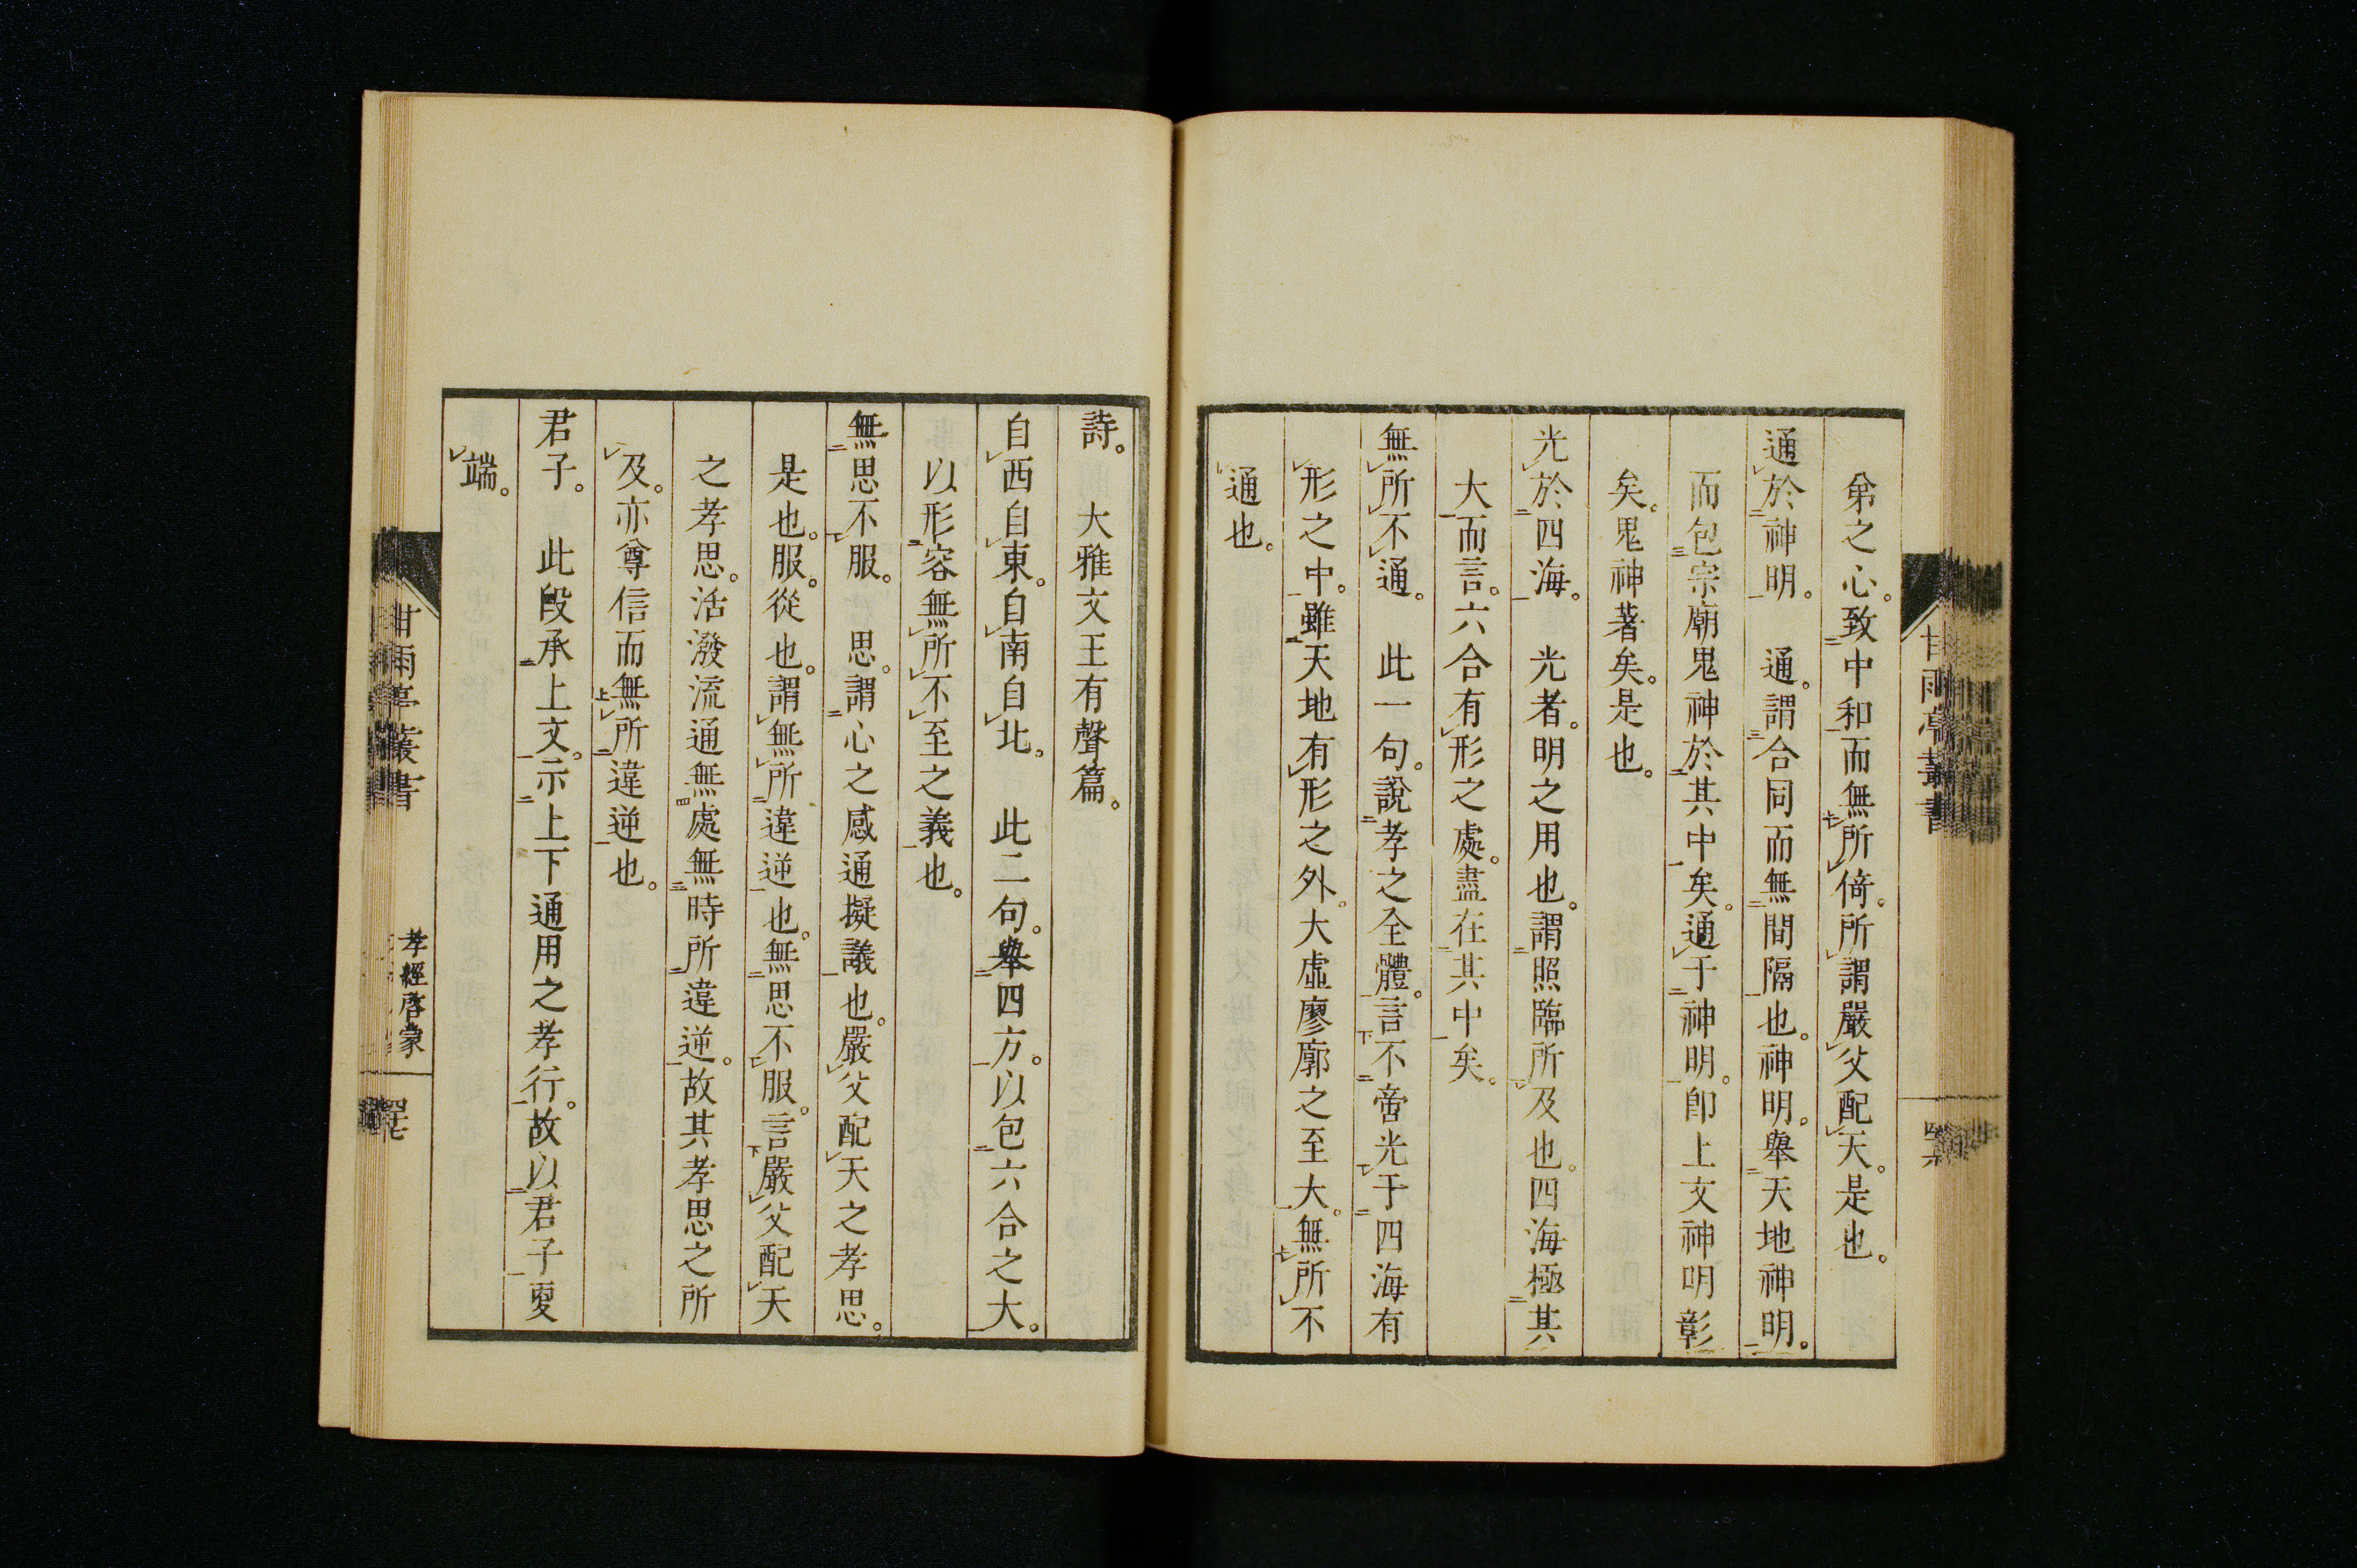 弟之心。致中和而無所倚。所謂嚴父配天。是也。
通於神明。 通。謂合同而無間隔也。神明。舉天地神明。
而包宗廟鬼神於其中矣。通于神明。卽上文神明彰
矣。鬼神著矣。是也。
光於四海。 光者。明之用也。謂照臨所及也。四海極其
大而言。六合有形之處。盡在其中矣。
無所不通。 此一句。說孝之全體。言不啻光于四海有
形之中。雖天地有形之外。大虛廖廓之至大。無所不
通也。
甘雨亭叢書
詩。 大雅文王有聲篇。
自西自東。自南自北。 此二句。舉四方。以包六合之大。
以形容無所不至之義也。
無思不服。 思。謂心之感通擬議也。嚴父配天之孝思。
是也。服。從也。謂無所違逆也。無思不服。言嚴父配天
之孝思。活潑流通無處無時所違逆。故其孝思之所
及。亦尊信而無所違逆也。
君子。 此段承上文。示上下通用之孝行。故以君子更
端。
甘雨亭叢書
孝經啓蒙